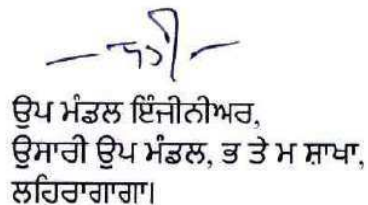 ਉਪ ਮੰਡਲ ਇੰਜੀਨੀਅਰ,
ਉਸਾਰੀ ਉਪ ਮੰਡਲ, ਭ ਤੇ ਮ ਸ਼ਾਖਾ,
ਲਹਿਰਾਗਾਗਾ।